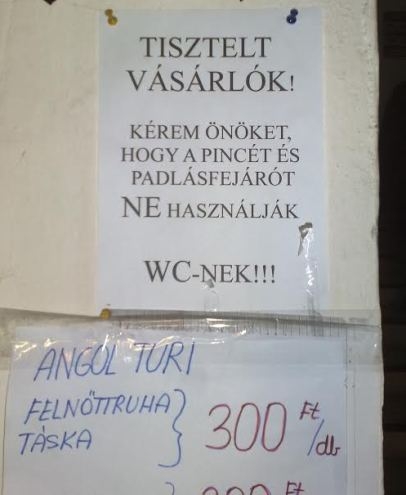 TISZTELT
VÁSÁRLÓK!
KÉREM ÖNÖKET,
HOGY A PINCÉT ÉS
PADLÁSFEJÁRÓT
NE HASZNÁLJÁK
WC-NEK!!!
ANGOL TURI
FELNŐTTRUHA
TÁSKA
300 Ft/db